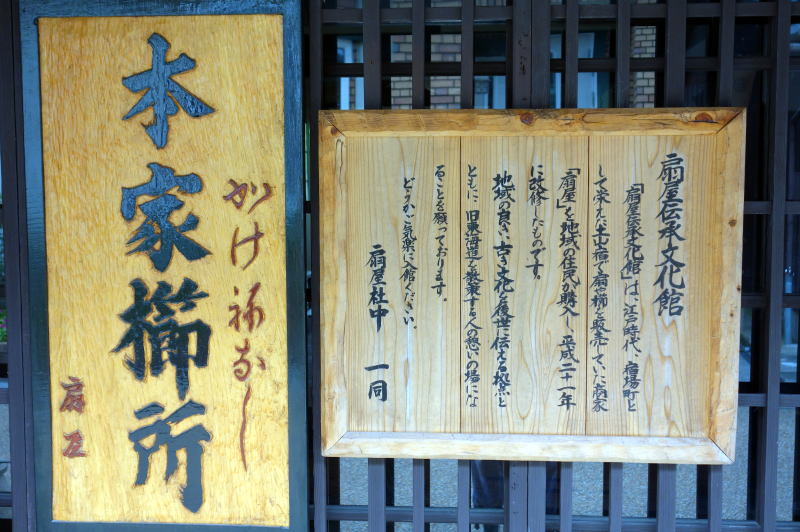 扇屋伝承文化館
「扇屋伝承文化館」は、江戸時代、宿場町と
して栄えた土山宿で扇や櫛を販売していた商家
「扇屋」を地域の住民が購入し、平成二十一年
に改修したものです。
地域の良い古き文化を後世に伝える拠点と
ともに、旧東海道を散策する人の憩いの場にな
ることを願っております。
どうかご気楽に入館ください。
扇屋社中 一同
本家櫛所
かけねなし
扇正